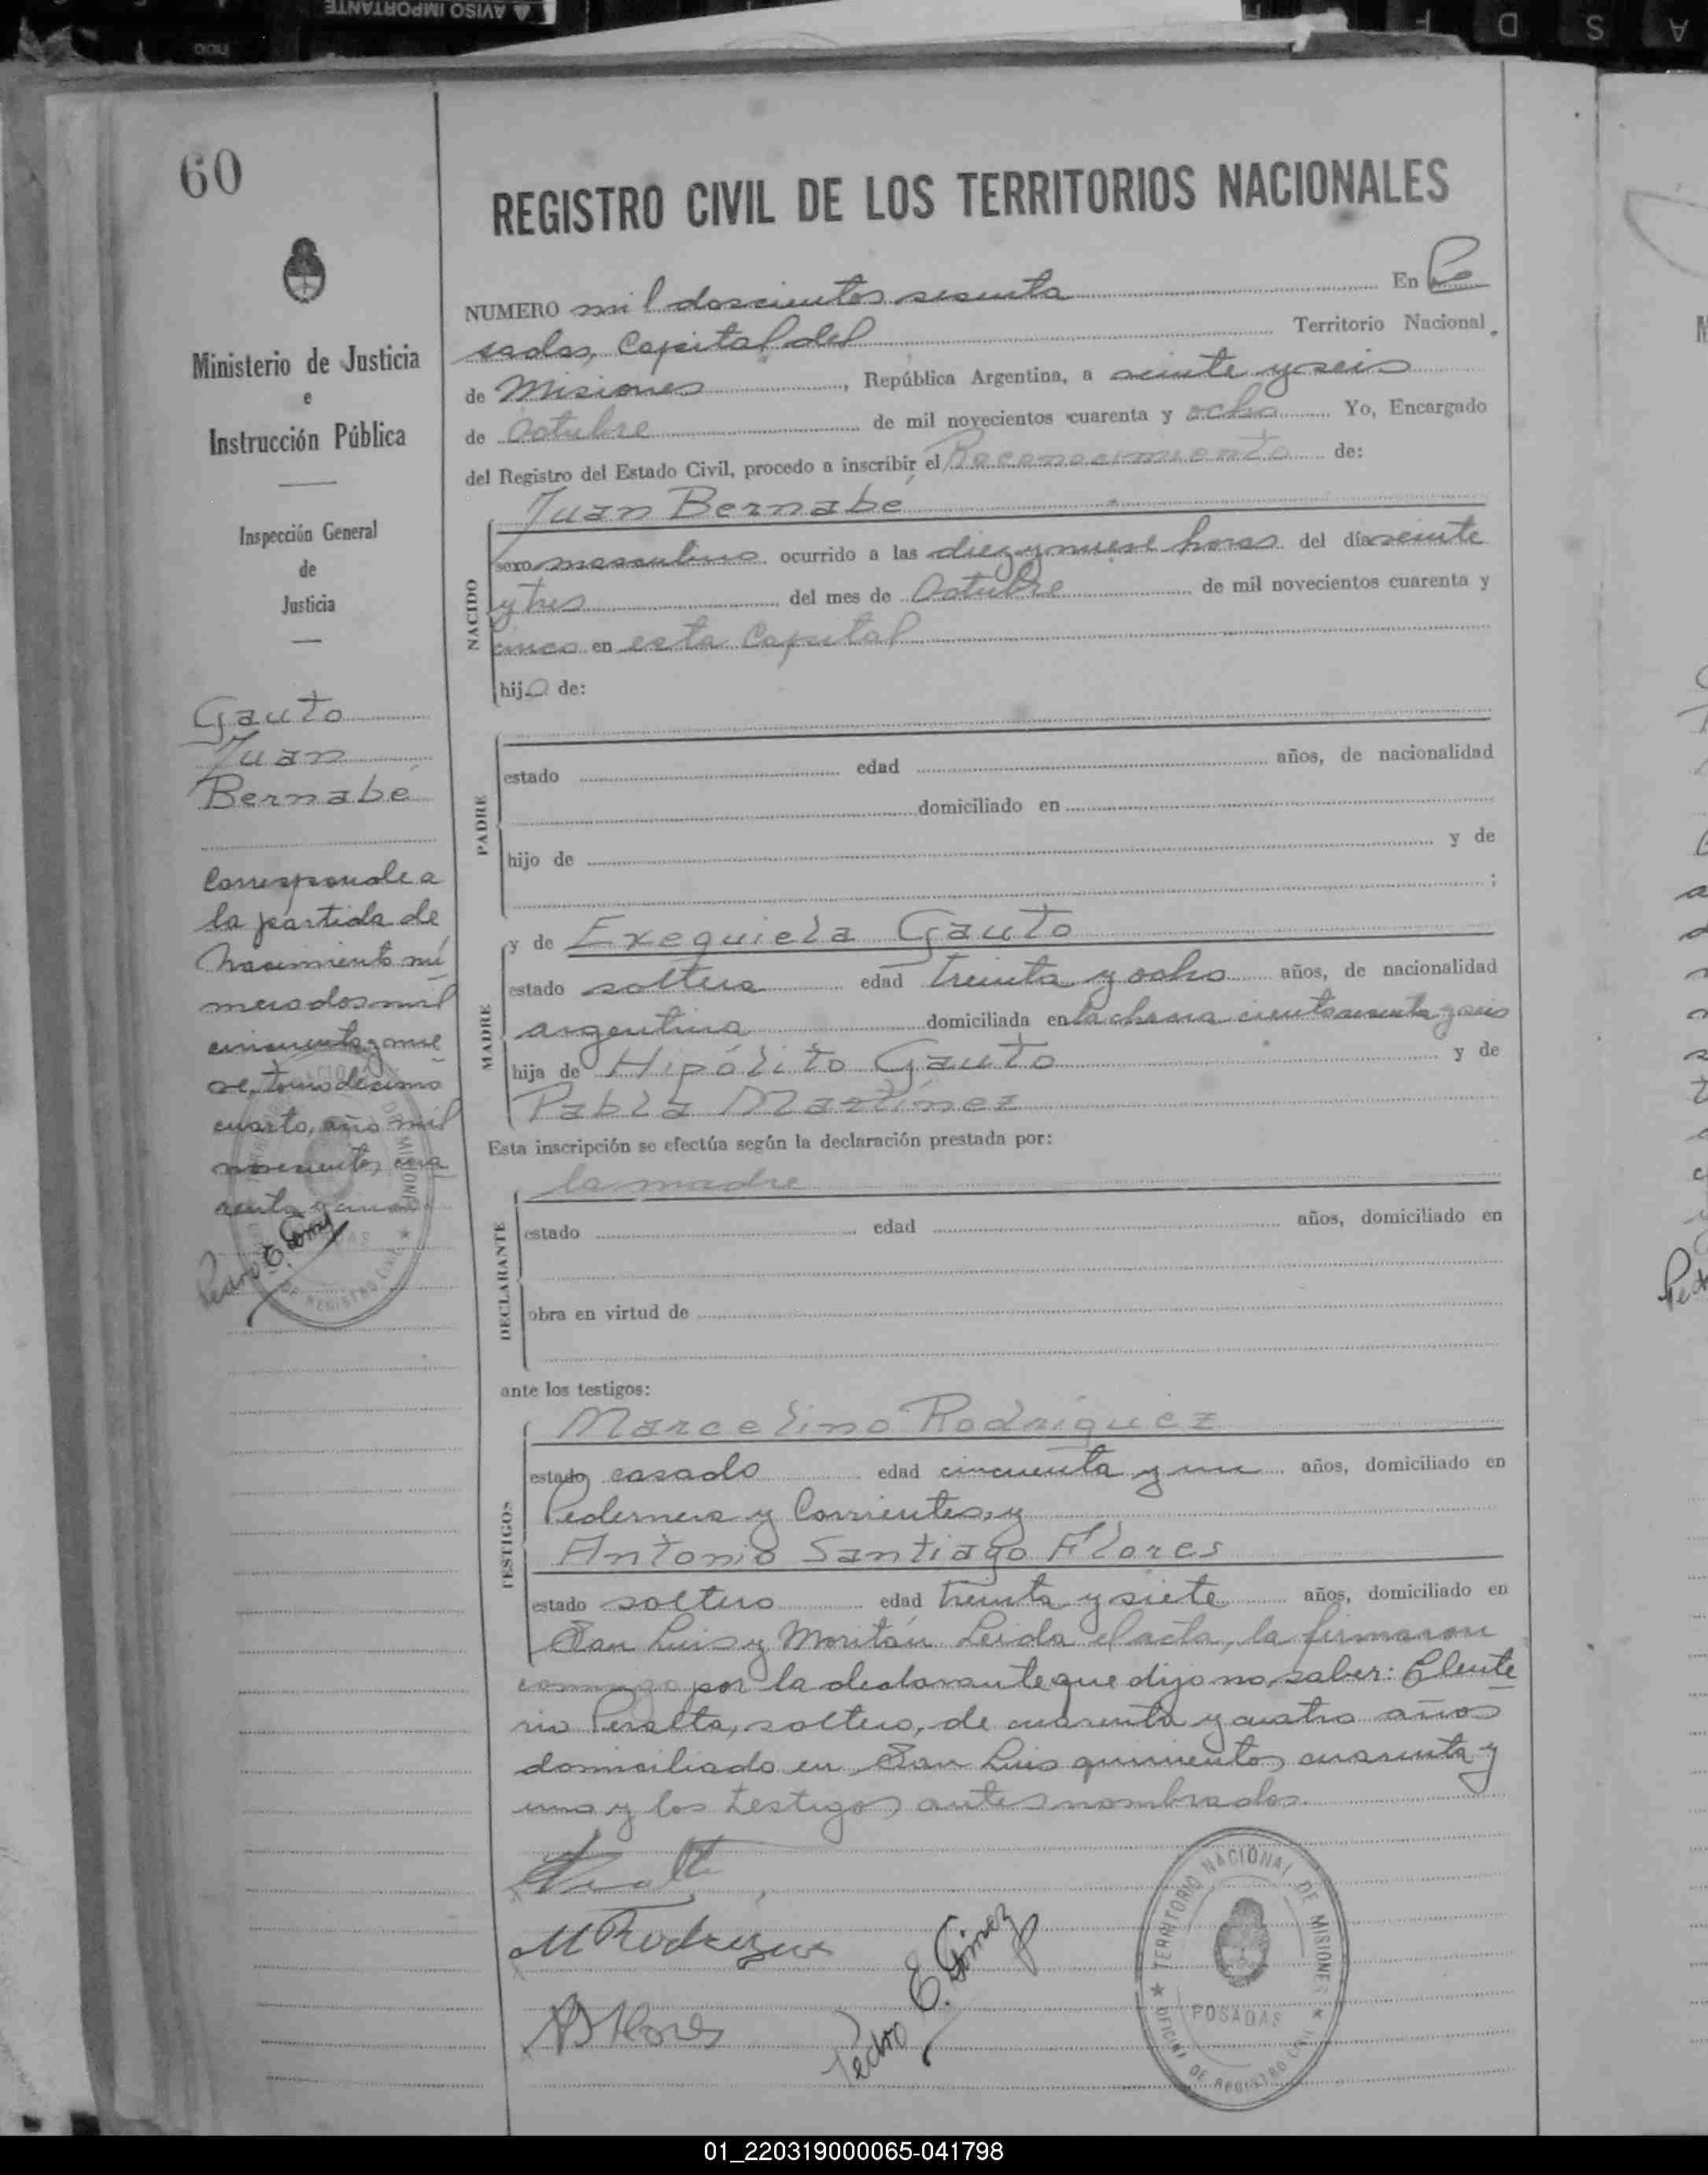 AVISO IMPORTANTE
F D S A
INICIO
60
REGISTRO CIVIL DE LOS TERRITORIOS NACIONALES
Ministerio de Justicia
e
Instrucción Pública
Inspección General
de
Justicia
Gauto
Juan
Bernabé
Corresponde a
la partida de
Nacimiento nú
mero dos mil
cincuenta y nue
ve, tomo décimo
cuarto, año mil
novecientos cua
renta y
Pedro E. Gómez
NUMERO mil doscientos sesenta En Po
sadas, Capital del Territorio Nacional
de Misiones, República Argentina, a veinte y seis
de Octubre de mil novecientos cuarenta y ocho Yo, Encargado
del Registro del Estado Civil, procedo a inscribir el Reconocimiento de:
Juan Bernabé
NACIDO
sexo masculino ocurrido a las diez y nueve horas del día veinte
y tres del mes de Octubre de mil novecientos cuarenta y
cinco en esta Capital
hijo de:
PADRE
estado edad años, de nacionalidad
domiciliado en
hijo de y de
;
MADRE
y de Exequiela Gauto
estado soltera edad treinta y ocho años, de nacionalidad
argentina domiciliada en la chacra ciento y seis
hija de Hipólito Gauto y de
Pabla Martínez
Esta inscripción se efectúa según la declaración prestada por:
DECLARANTE
la madre
estado edad años, domiciliado en
obra en virtud de
ante los testigos:
TESTIGOS
Marcelino Rodríguez
estado casado edad cincuenta y un años, domiciliado en
Pedernera y Corrientes, y
Antonio Santiago Flores
estado soltero edad treinta y siete años, domiciliado en
San Luis y Moritán Leida el acta, la firmaron
conmigo por la declarante que dijo no saber: Eleute
rio Peralta, soltero, de cuarenta y cuatro años
domiciliado en San Luis quinientos cuarenta y
uno y los testigos antes nombrados.
Peralta
M Rodriguez
A S Flores
Pedro E. Gómez
TERRITORIO NACIONAL DE MISIONES
POSADAS
OFICINA DE REGISTRO CIVIL
01_220319000065-041798